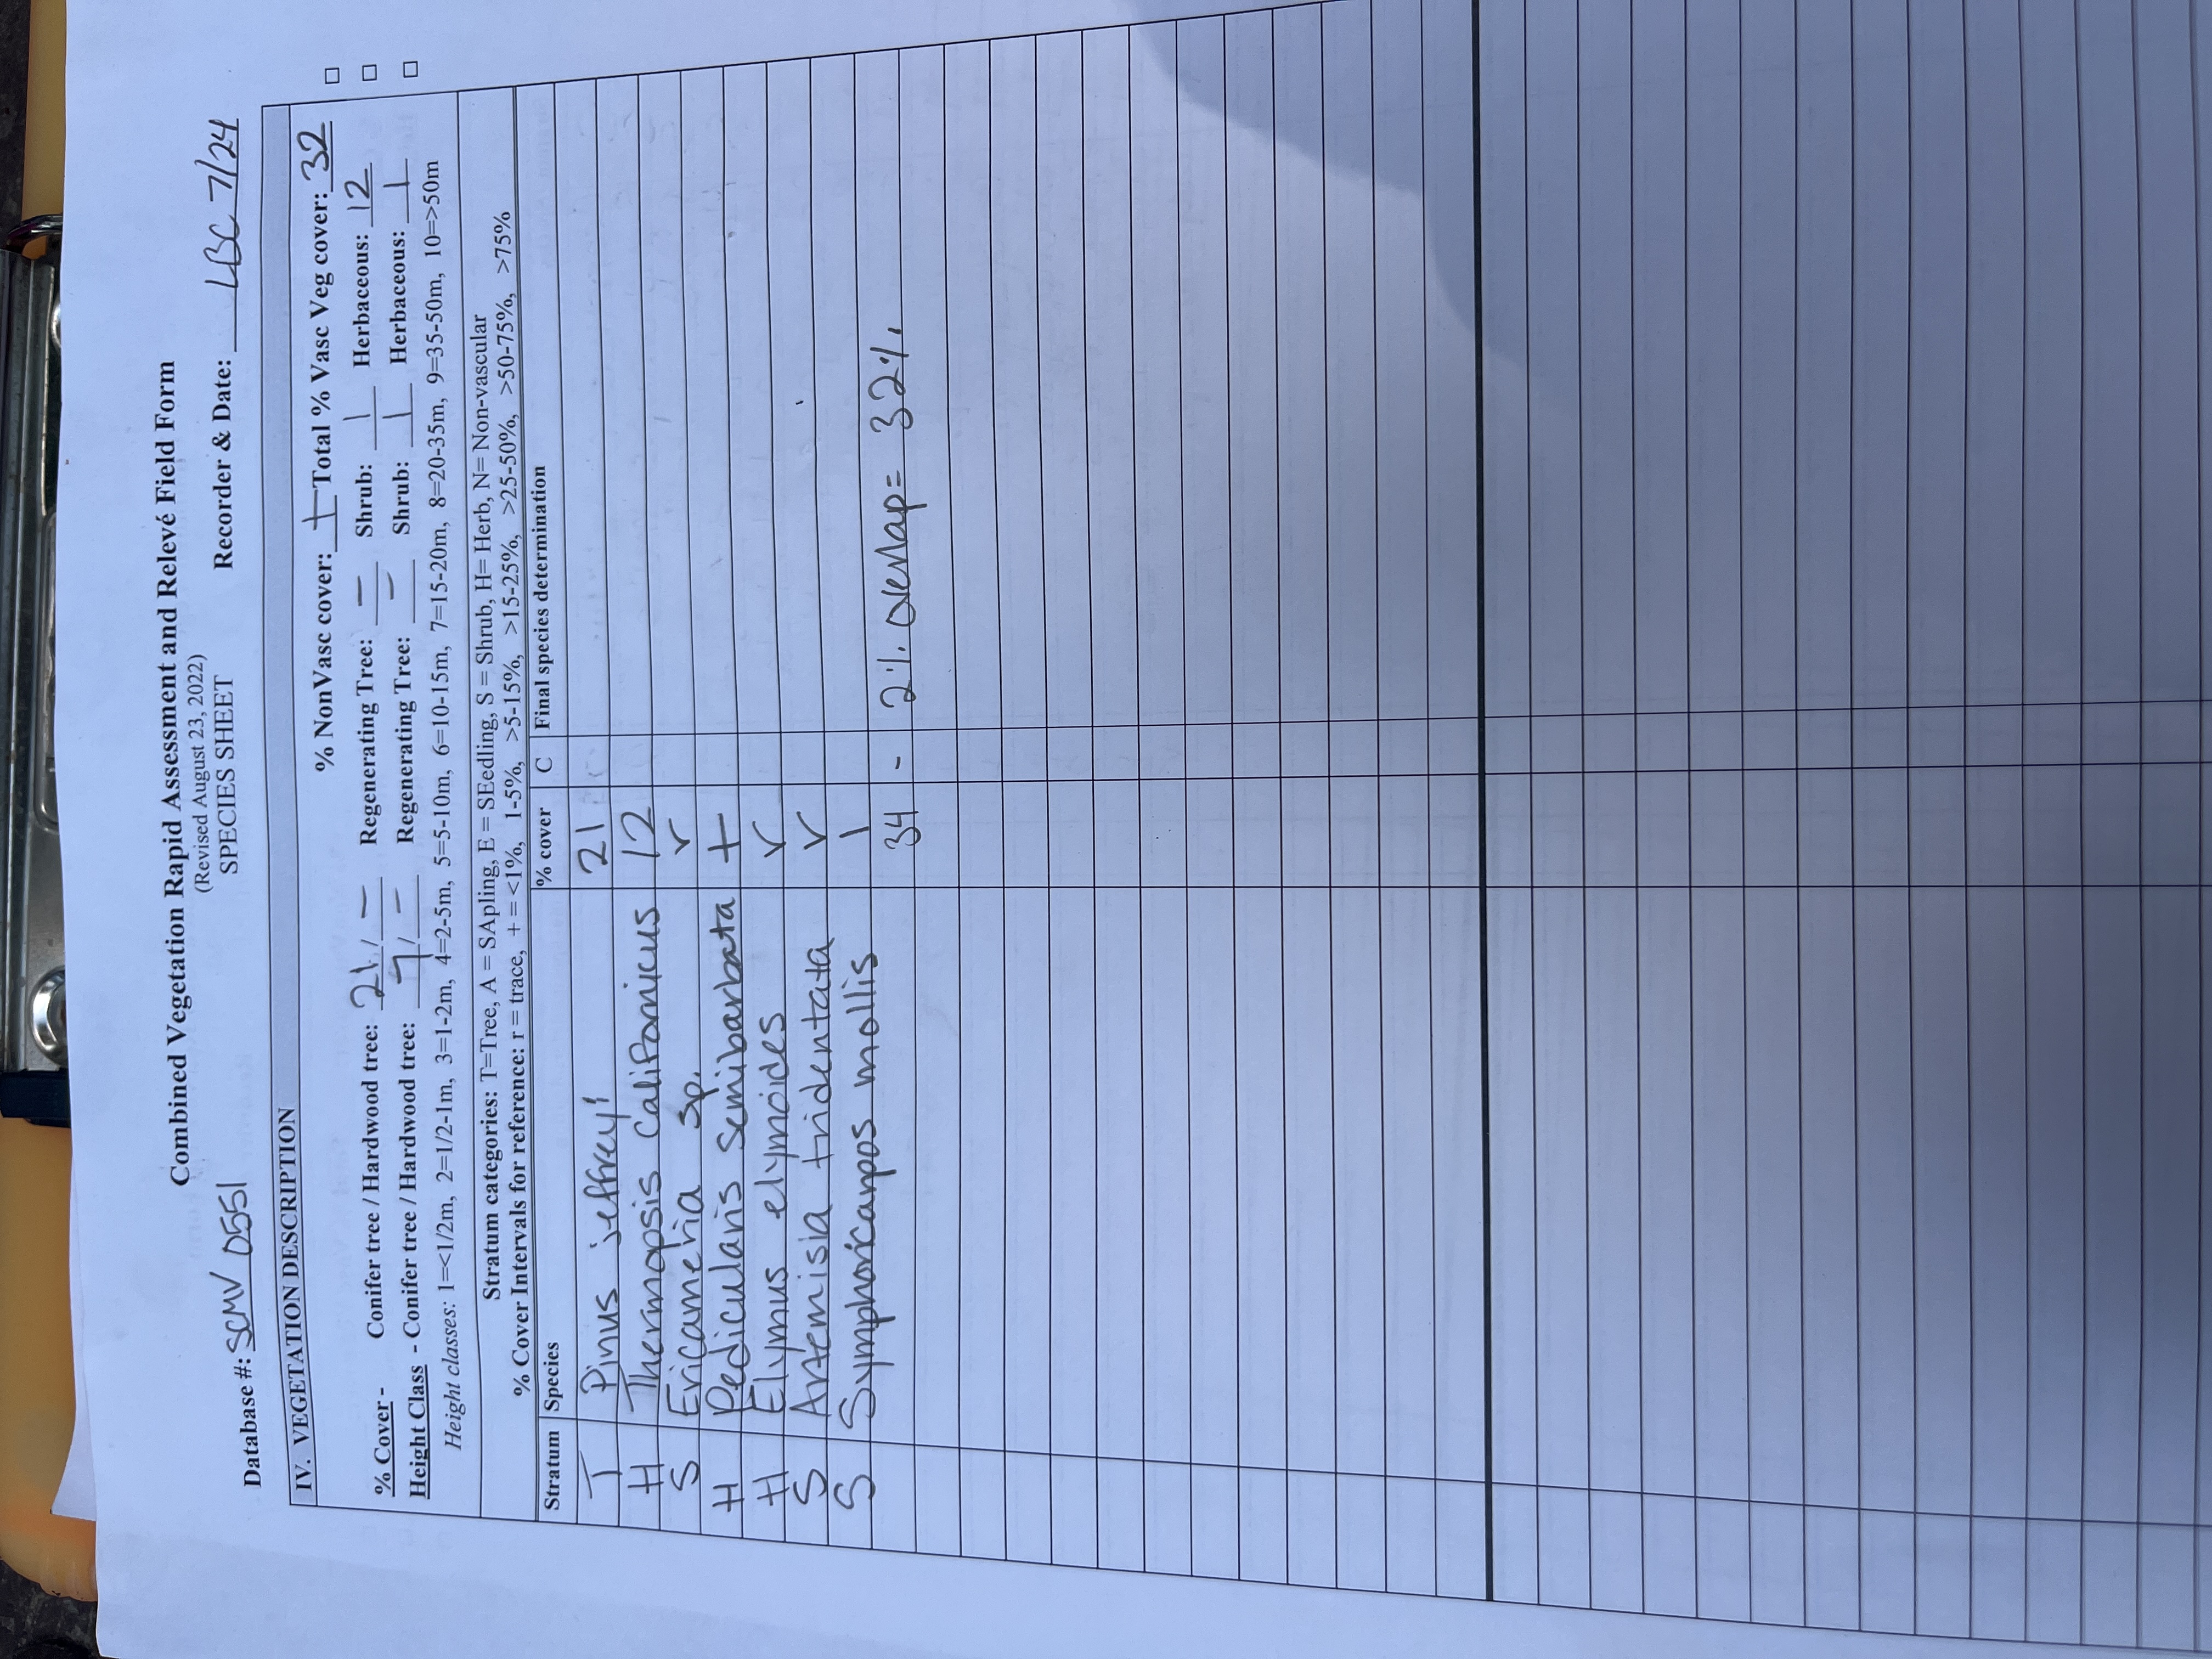 Combined Vegetation Rapid Assessment and Relevé Field Form
(Revised August 23, 2022)
SPECIES SHEET
Database #: SCMV 0551 Recorder & Date: LBC 7/24
IV. VEGETATION DESCRIPTION
% NonVasc cover: + Total % Vasc Veg cover: 32 □
% Cover - Conifer tree / Hardwood tree: 21 / — Regenerating Tree: — Shrub: 1 Herbaceous: 12 □
Height Class - Conifer tree / Hardwood tree: 7 / — Regenerating Tree: — Shrub: 1 Herbaceous: 1 □
Height classes: 1=<1/2m, 2=1/2-1m, 3=1-2m, 4=2-5m, 5=5-10m, 6=10-15m, 7=15-20m, 8=20-35m, 9=35-50m, 10=>50m
Stratum categories: T=Tree, A = SApling, E = SEedling, S = Shrub, H= Herb, N= Non-vascular
% Cover Intervals for reference: r = trace, + = <1%, 1-5%, >5-15%, >15-25%, >25-50%, >50-75%, >75%
Stratum Species % cover C Final species determination
T Pinus jeffreyi 21
H Thermopsis californicus 12
S Ericameria sp. r
H Pedicularis semibarbata +
H Elymus elymoides r
S Artemisia tridentata r
S Symphoricarpos mollis 1
34 - 2% overlap = 32%